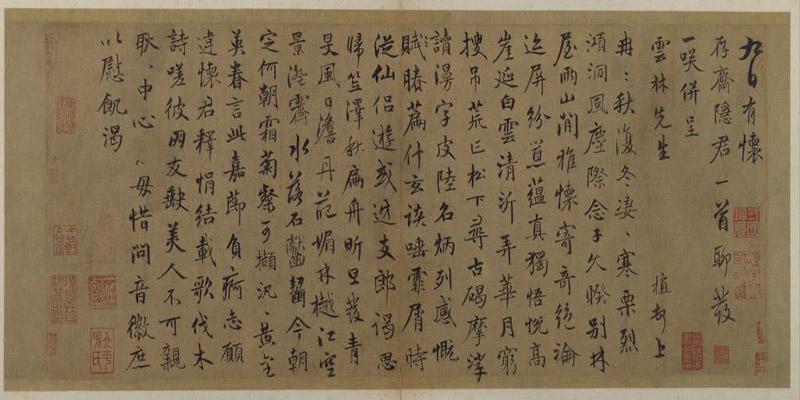 九日有懷
存齋隱君一首聊發
一咲併呈
雲林先生　植頓上
冉冉秋復冬淒淒寒栗烈
澒洞風塵際念子久睽別林
屋兩山間雅懷寄奇絕淪
迄屏紛蕞蘊真獨悟悅高
崖延白雲清沂弄華月窮
搜吊荒亡松下尋古碣摩挲
讀漫字皮陸名炳列感慨
賦賡篇什玄談唾霏屑時
從仙侶遊或迓支郎謁思
歸笠澤秋扁舟昕旦發青
旻風日澹丹范媚林樾江空
景澄霽水落石齧今朝
定何朝霜菊粲可擷況況黃金
英眷言此嘉節負痾志願
違懷君釋悁結載歌伐木
詩嗟彼朋友缺美人不可親
耿耿中心心毋惜問音徽庶
以慰飢渴